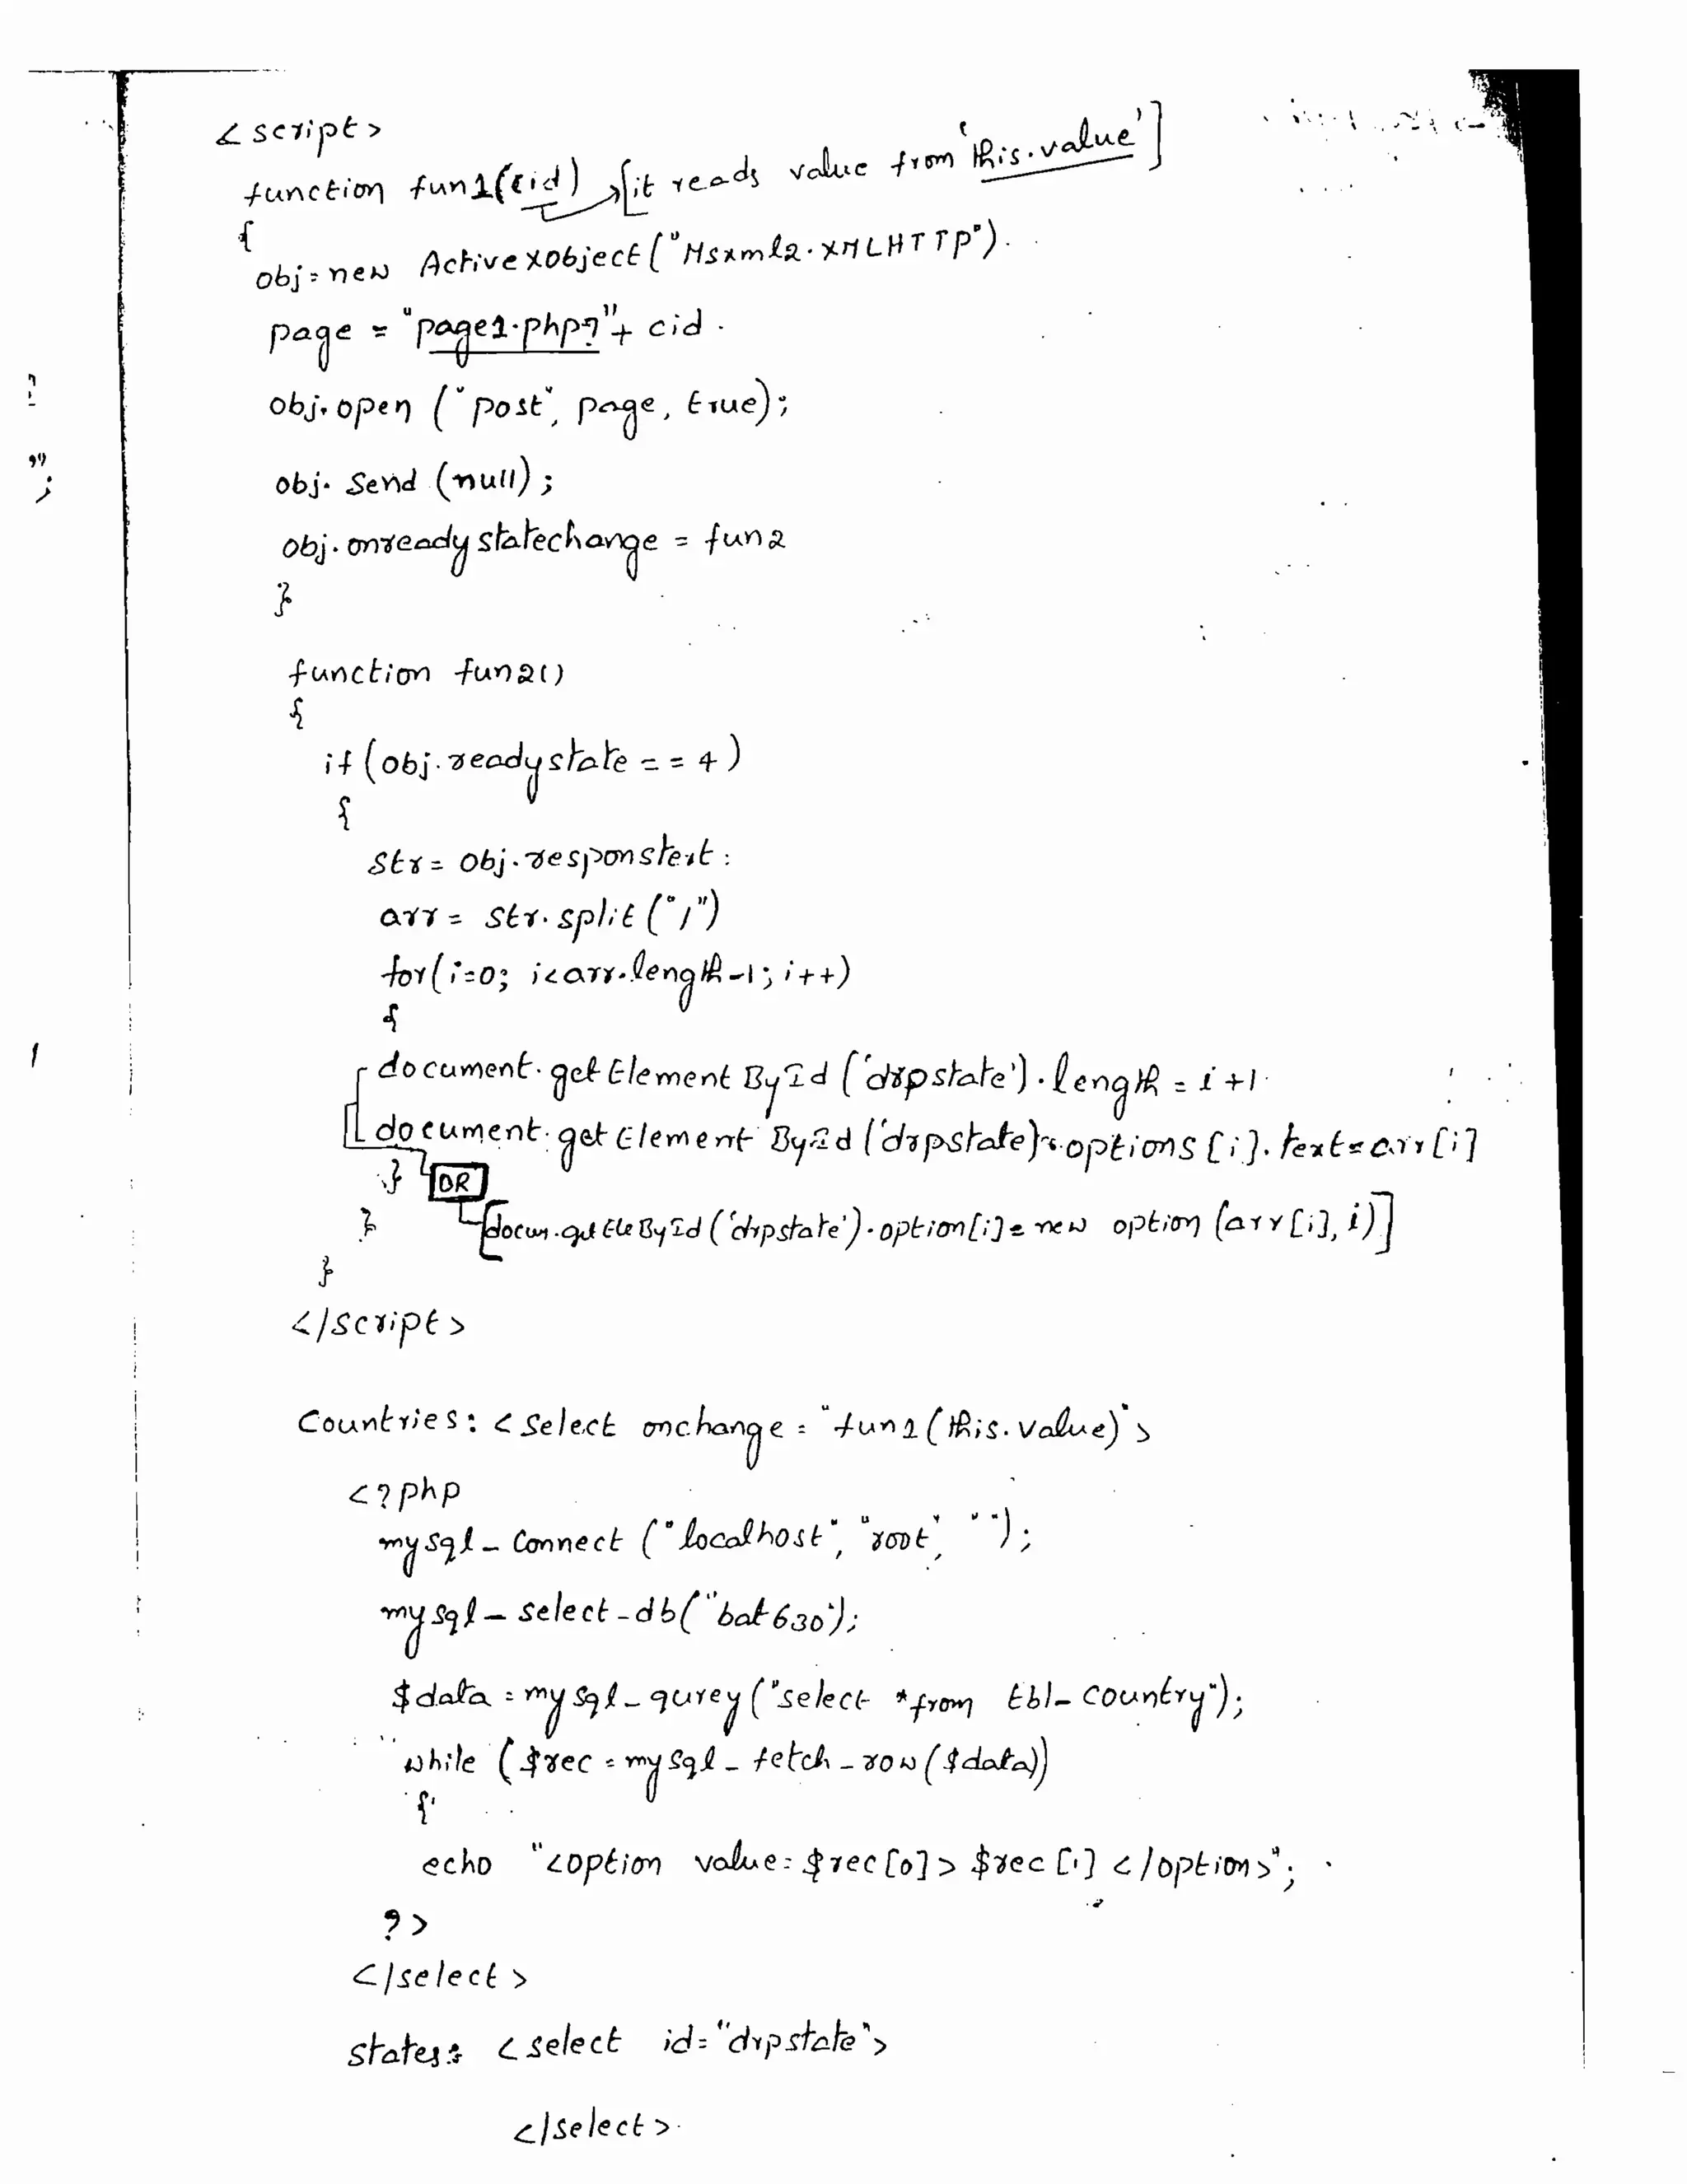 <script>
function fun1(cid) [it reads value from 'this.value']
{
obj = new ActiveXobject ("Msxml2.XMLHTTP").
page = "page1.php?"+ cid.
obj.open ("post", page, true);
obj. Send (null);
obj.onreadystatechange = fun2
}
function fun2()
{
if (obj.readystate == 4)
{
str = obj.responstext:
arr = str.split ("/")
for(i=0; i<arr.length-1; i++)
{
document.getElementById ('drpstate').length = i+1.
document.getElementById ('drpstate').options [i].text=arr[i]
} OR
} [docum.getEleById ('drpstate').option[i] = new option (arr[i], i)]
}
</script>
Countries: <select onchange = "fun1(this.value)">
<?php
mysql_connect ("localhost", "root", "");
mysql_select_db("bat630");
$data = mysql_qurey("select *from tbl_country");
while ($rec = mysql_fetch_row($data))
{
echo "<option value=$rec[0]> $rec[1] </option>";
?>
</select>
states: <select id="drpstate">
</select>